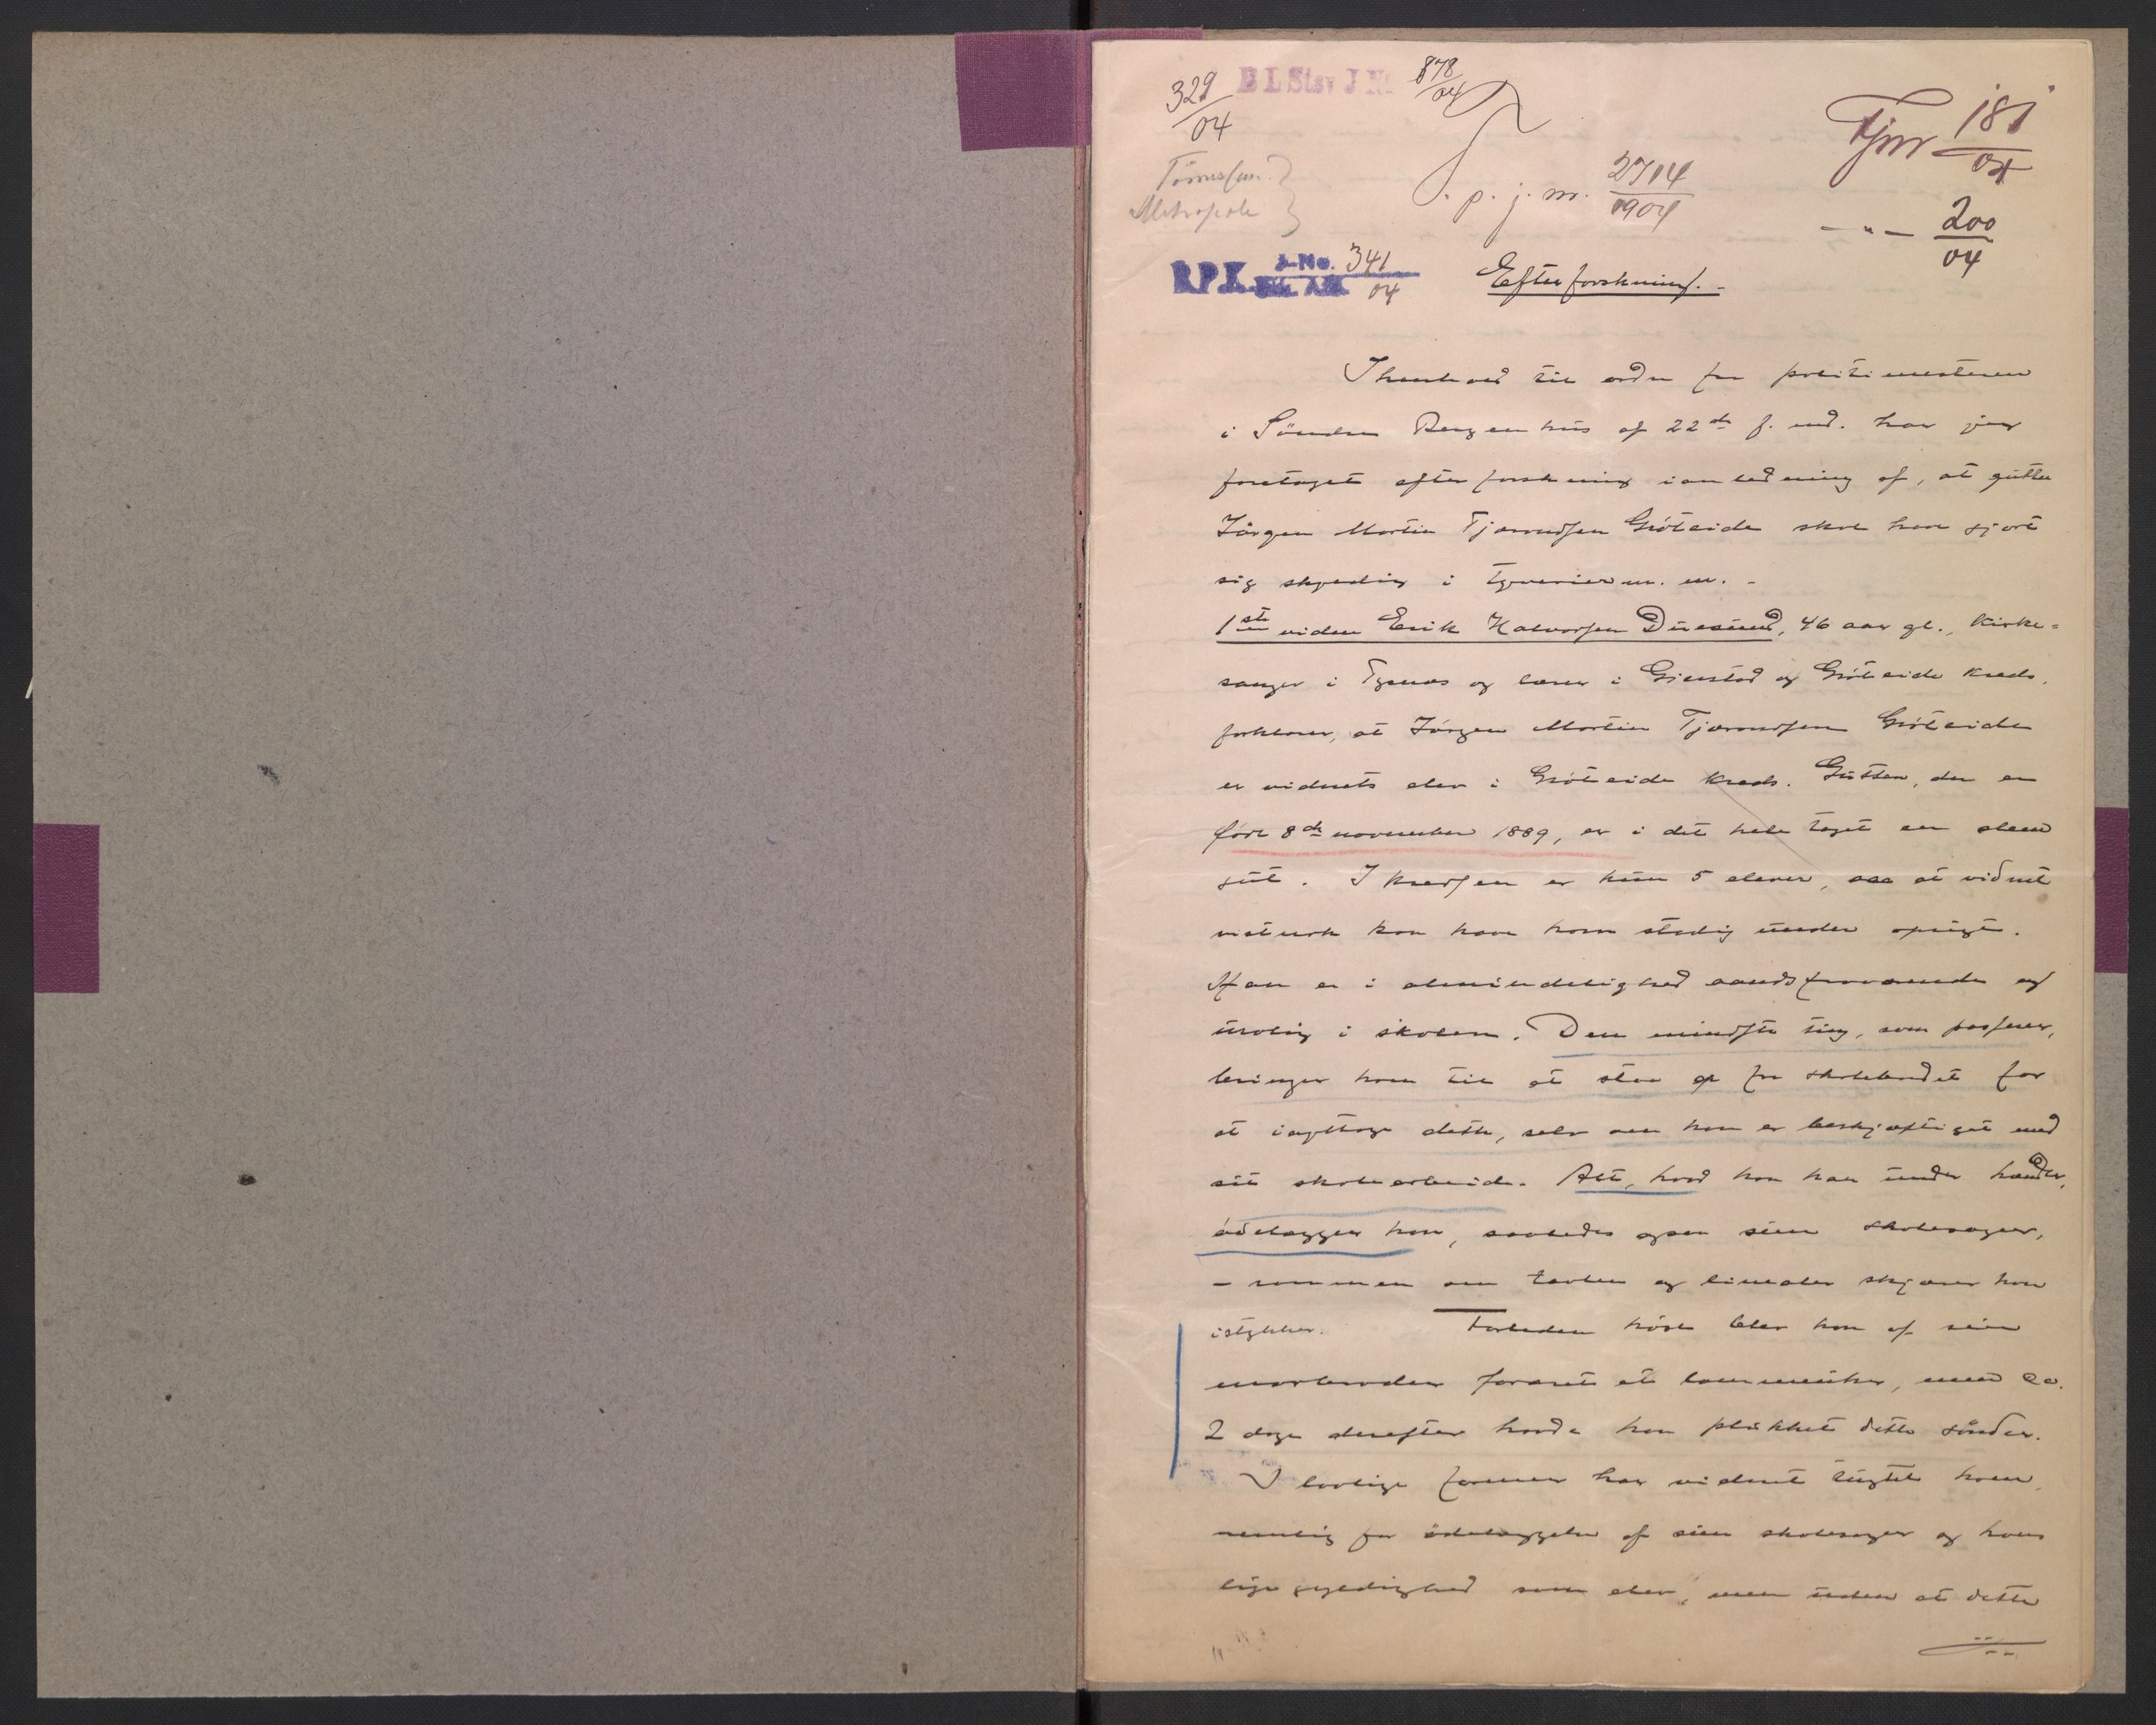 329
04
B L Stsv J Nr
878
04
Tjnr 181
04
S. p. j. nr. 2714
1904
— " — 200
04
R.P.K. J-No. 341
04
Efterforskning.
I henhold til ordre fra politimesteren
i Söndre Bergenhus af 22de f. md. har jeg
foretaget efterforskning i anledning af, at gutten
Jörgen Martin Tjerandsen Gröteide skal have gjort
sig skyldig i tyverier m. m. -
1ste vidne Erik Halvorsen Duesund, 46 aar gl., kirke=
sanger i Tysnes og lærer i Gjerstad og Gröteide kreds,
forklarer, at Jörgen Martin Tjerandsen Gröteide
er vidnets elev i Gröteide kreds. Gutten, der er
födt 8de november 1889, er i det hele taget en slem
gut. I kredsen er kun 5 elever, saa at vidnet
vistnok kan have ham stadig under opsigt.
Han er i almindelighed aandsfraværende og
urolig i skolen. Den mindste ting, som passerer,
bringer ham til at staa op fra skolebordet for
at iagttage dette, selv om han er beskjæftiget med
sit skolearbeide. Alt, hvad han har under hænder,
ödelægger han, saaledes ogsaa sine skolesager,
- rammen om tavlen og linealer skjærer han
istykker. Forleden höst blev han af sin
morbroder foræret et lommeuhr, men ca.
2 dage derefter havde han plukket dette sönder.
I lovlige former har vidnet tugtet ham,
nemlig for ödelæggelse af sine skolesager og hans
ligegyldighed som elev, men uden at dette